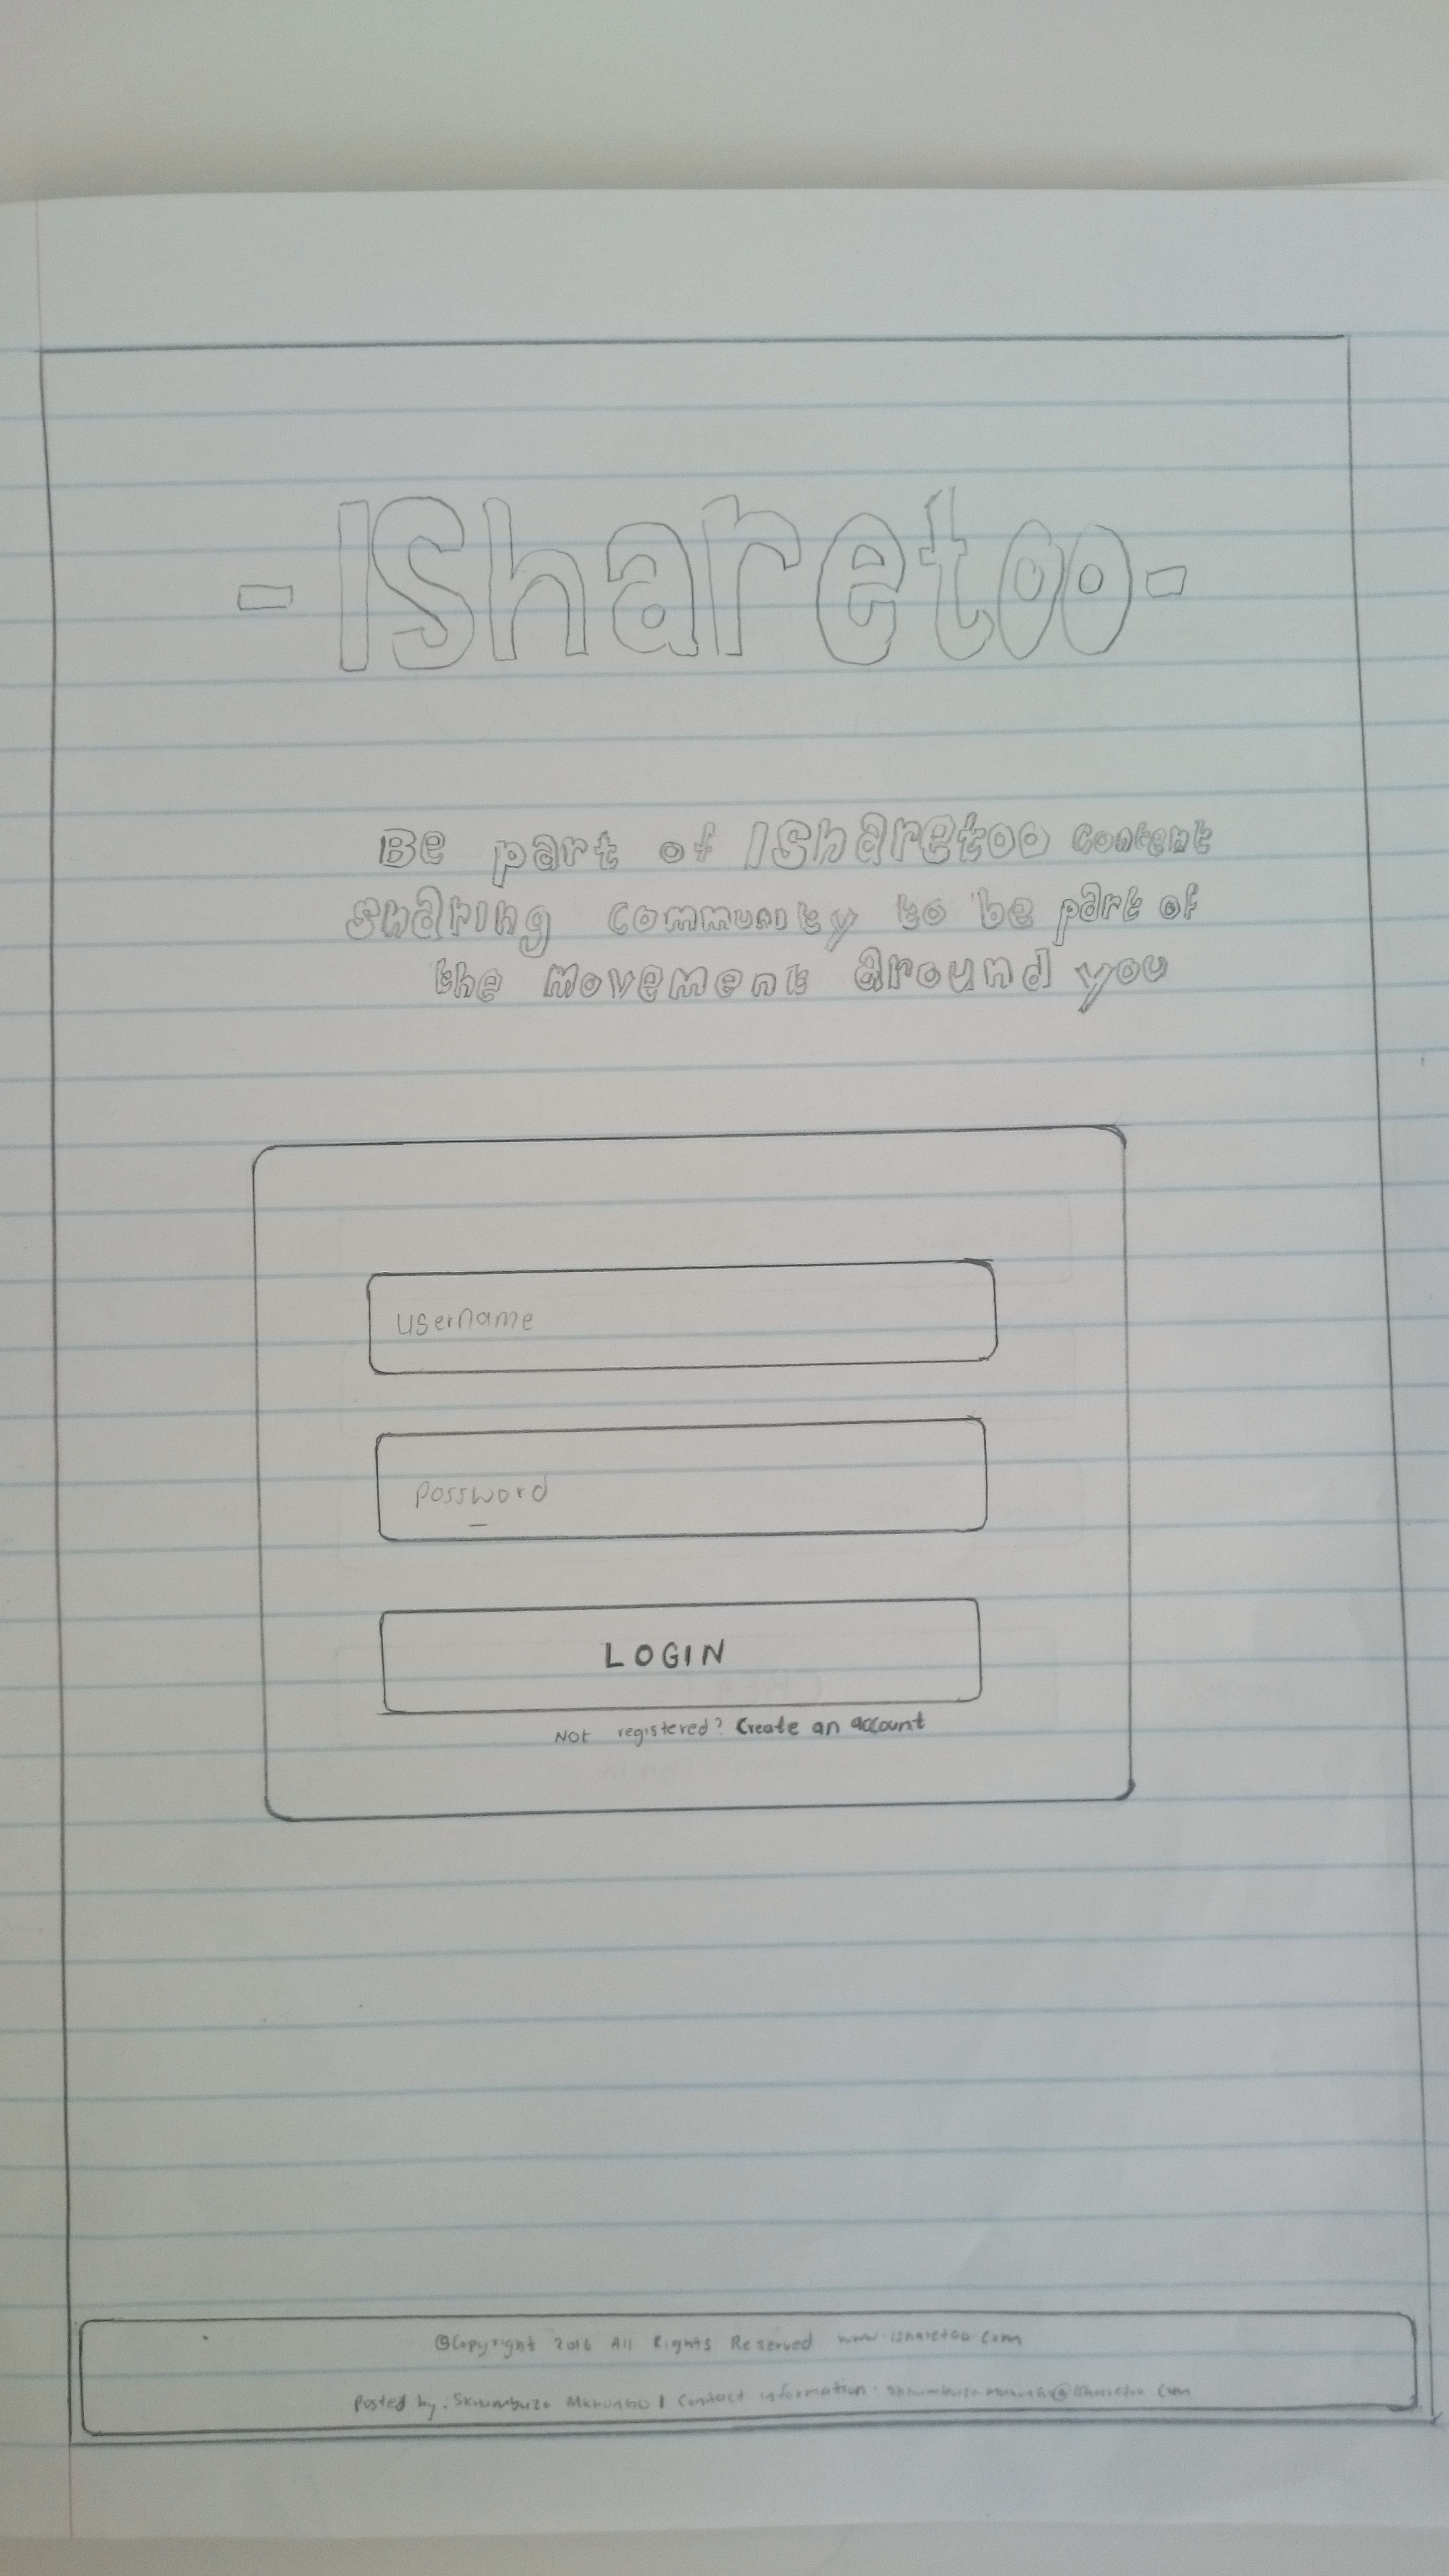 -ISharetoo-
Be part of ISharetoo content
sharing community to be part of
the movement around you
username
password
LOGIN
Not registered? Create an account
©Copyright 2016 All Rights Reserved www.isharetoo.com
Posted by: | Contact information: